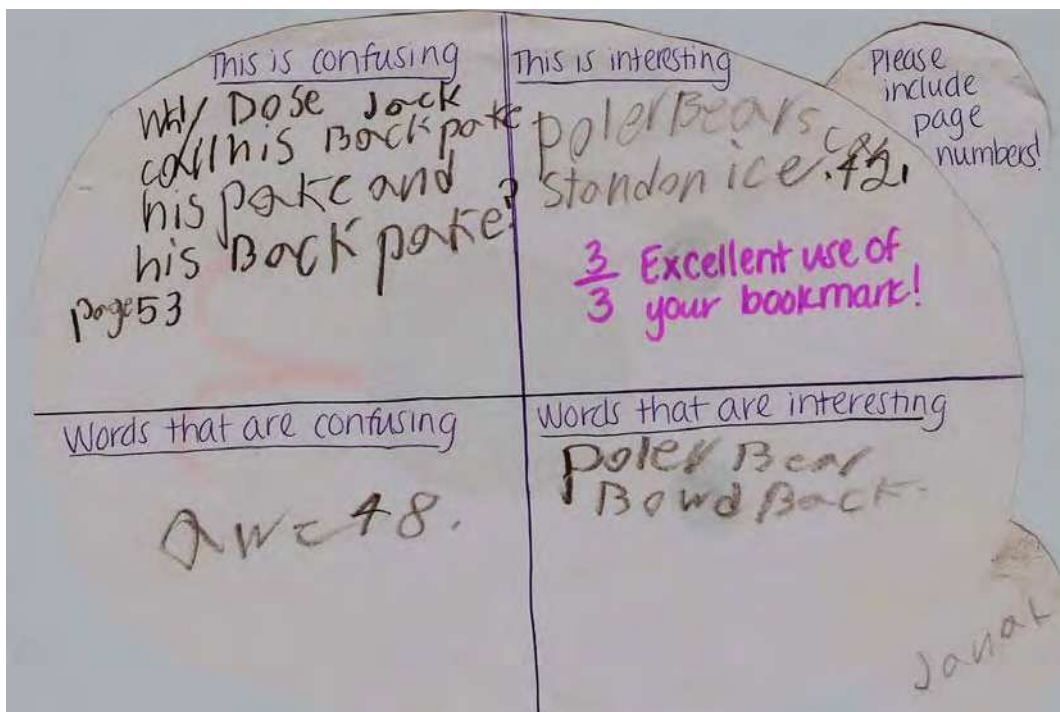 This is confusing
Why Dose Jack
call his Backpake
his pake and
his Backpake?
page 53
This is interesting
poler Bears can
stand on ice. 42.
3/3 Excellent use of
your bookmark!
Please
include
page
numbers!
Words that are confusing
aw = 48.
Words that are interesting
poler Bear
Bowd Back.